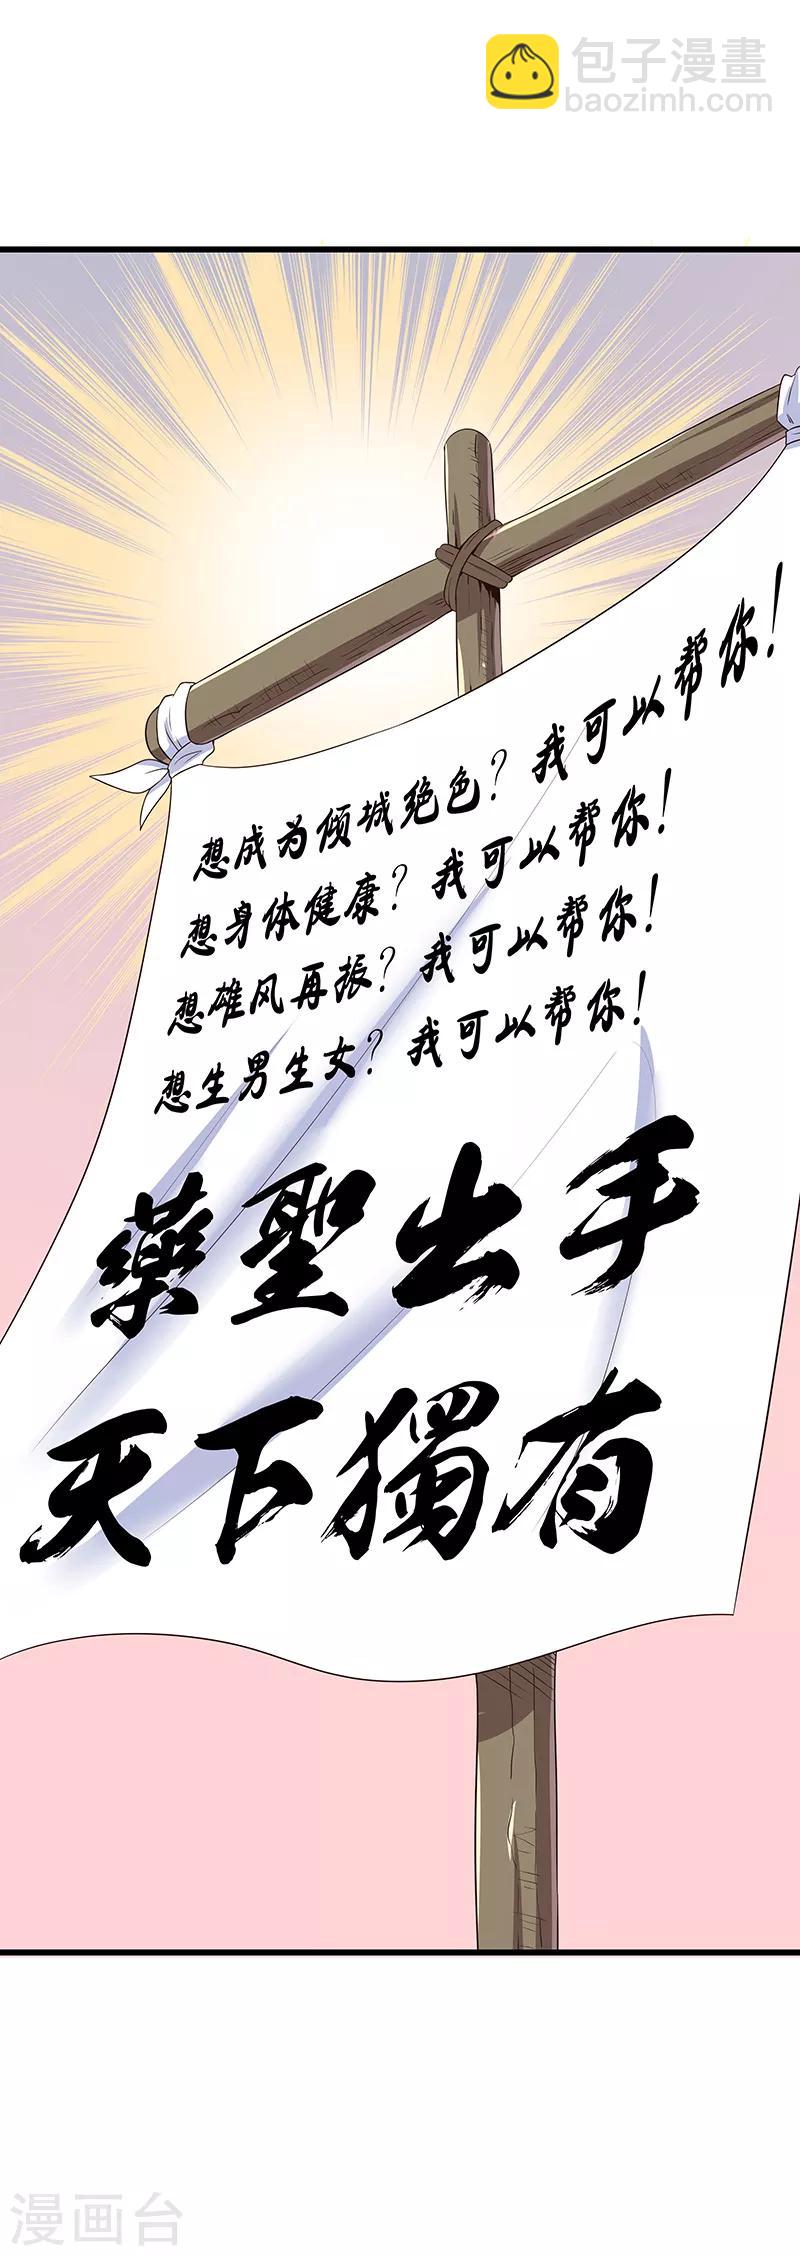 包子漫畫
baozimh.com
想成为倾城绝色？我可以帮你！
想身体健康？我可以帮你！
想雄风再振？我可以帮你！
想生男生女？我可以帮你！
藥聖出手
天下獨有
漫画台